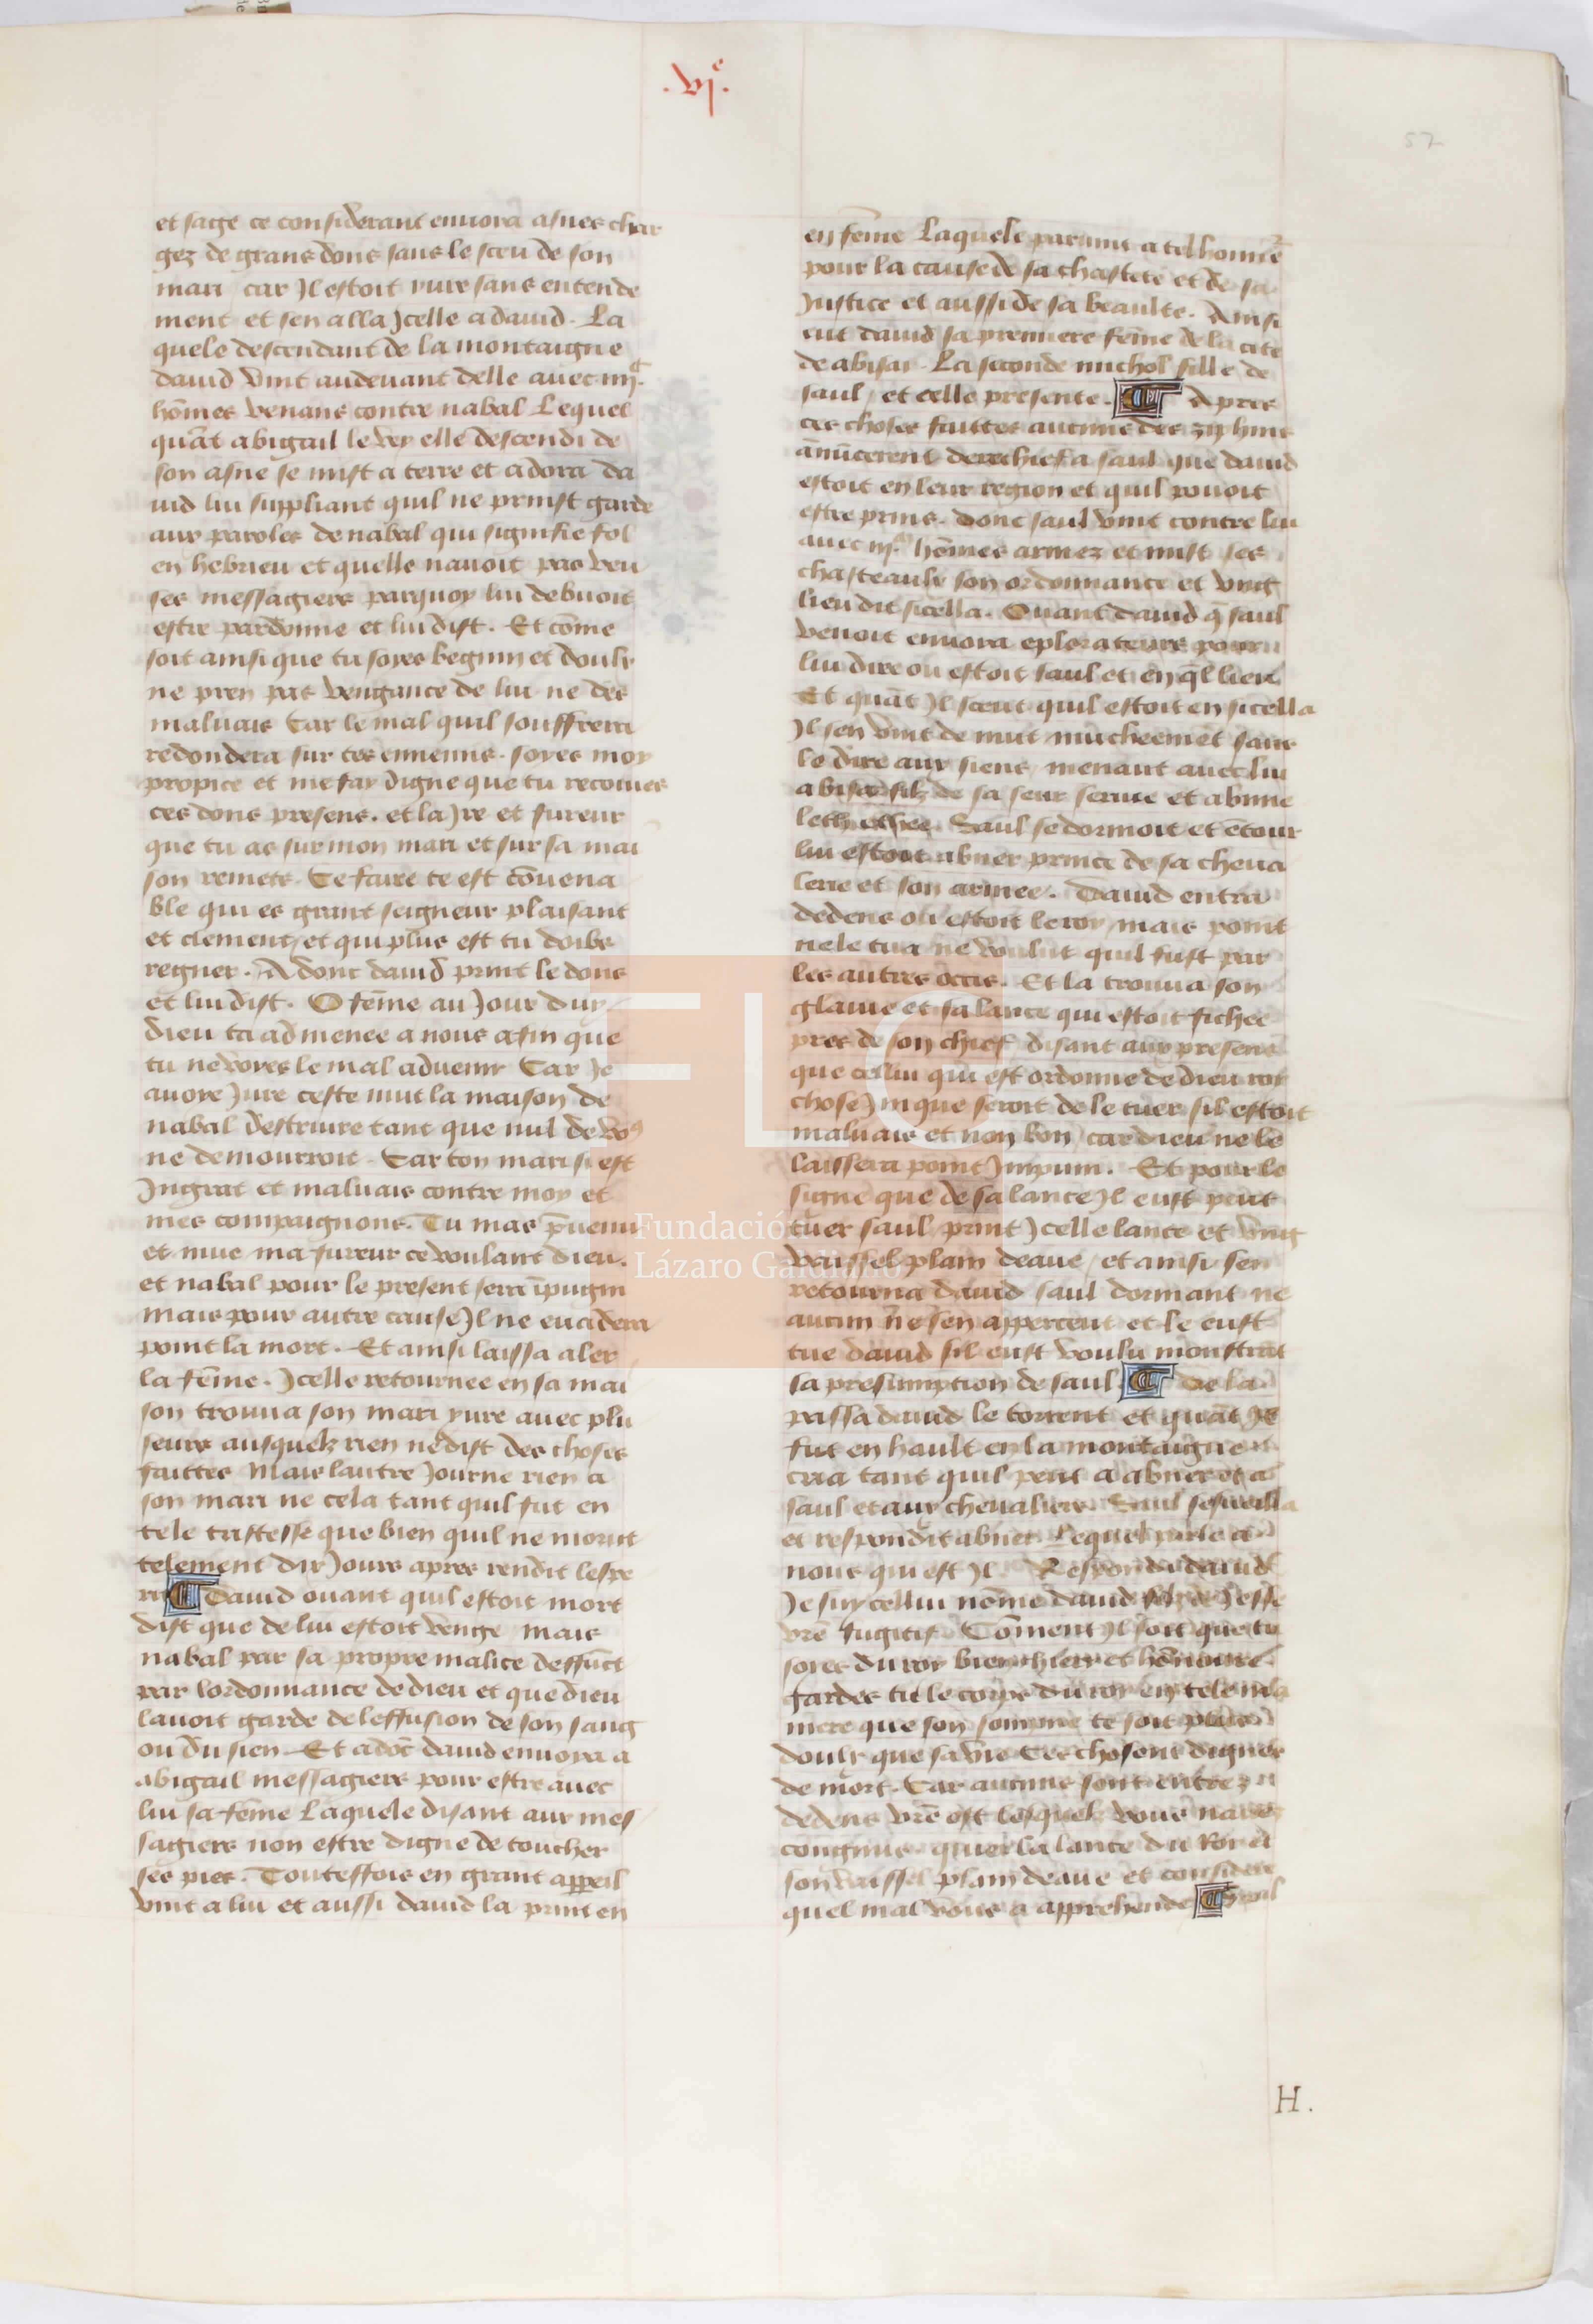 .vjᵉ.
57
et sage ce considerant enuoia asnes char
gez de grans dons sans le sceu de son
mari car Jl estoit yure sans entende
ment et sen alla Jcelle a dauid. La
quele descendant de la montaigne
dauid vint audeuant delle auec iiijᶜ.
hōmes venans contre nabal Lequel
quāt abigail le vey elle descendi de
son asne se mist a terre et adora da
uid lui suppliant quil ne prinst garde
aux paroles de nabal qui signifie fol
en hebrieu et quelle nauoit pas veu
ses messagiers parquoy lui debuoit
estre pardonne et lui dist. Et cōme
soit ainsi que tu soyes begnin et doulx
ne pren pas vengance de lui ne des
maluais Car le mal quil souffrera
redondera sur tes ennemis. soyes moy
propice et me fay digne que tu recoiues
ces dons presens. et la Jre et fureur
que tu as sur mon mari et sur sa mai
son remets. Ce faire te est cōuena
ble qui es grant seigneur plaisant
et clement, et qui plus est tu doibs
regner. Adonc dauid print le dons
et lui dist. O fēme au Jour duy
dieu ta admenee a nous afin que
tu ne voyes le mal aduenir Car Je
auoye Jure ceste nuit la maison de
nabal destruire tant que nul de voꝰ
ne demourroit. Car ton mari si est
Jngrat et maluais contre moy et
mes compaignons. Tu mas p̄uenu
et mue ma fureur ce voulant dieu.
et nabal pour le present sera īpugni
mais pour autre cause Jl ne euadera
point la mort. Et ainsi laissa aler
la fēme. Jcelle retournee en sa mai
son trouua son mari yure auec plu
seurs ausquelz rien ne dist des choses
faittes Mais lautre Journe rien a
son mari ne cela tant quil fut en
tele tristesse que bien quil ne morut
telement dix Jours apres rendit lespe
rit Dauid ouant quil estoit mort
dist que de lui estoit venge mais
nabal par sa propre malice deffunct
par lordonnance de dieu et que dieu
lauoit garde de leffusion de son sang
ou du sien. Et adōc dauid enuoya a
abigail messagiers pour estre auec
lui sa fēme Laquele disant aux mes
sagiers non estre digne de toucher
ses pies. Touteffois en grant appeil
vint a lui et aussi dauid la print en
en fēme Laquele paruint a tel homē
pour la cause de sa chastete et de sa
Justice et aussi de sa beaulte. Ainsi
eut dauid sa premiere fēme de la cite
de abisar. La seconde michol fille de
saul, et celle presente. Apres
ces choses faittes aucuns des ziphins
ānūcerent derechief a saul que dauid
estoit en leur region et quil pouoit
estre prins. donc saul vint contre lui
auec iijᵐ hōmes armez et mist ses
chasteaulx son ordonnance et vng
lieu dit sicella. Quant dauid q̄ saul
venoit enuoia eplorateurs pour
lui dire ou estoit saul et en q̄l lieu
Et quāt Jl sceut quil estoit en sicella
Jl sen vint de nuit mucheemēt sans
le dire aux siens, menant auec lui
abisai filz de sa seur seruie et abime
lech ethee. Saul se dormoit et ētour
lui estoit abner prince de sa cheua
lerie et son armee. Dauid entra
dedens ou estoit le roy, mais point
ne le tua ne voulut quil fust par
les autres occis. Et la trouua son
glaiue et sa lance qui estoit fichee
pres de son chief disant aux presens
que cellui qui est ordonne de dieu roy
chose Jnique seroit de le tuer sil estoit
maluais et non bon, car dieu ne le
laissera point Jmpuni. Et pour le
signe que de sa lance Jl eust peut
tuer saul print Jcelle lance et vng
vaissel plain deaue, et ainsi sen
retourna dauid saul dormant ne
aucun ne sen apperceut et le eust
tue dauid sil eust voulu monstrāt
sa presumption de saul De la
passa dauid le torrent et quāt Jl
fut en hault en la montaigne
cria tant quil peut a abner et a
saul et aux cheualiers. Saul sesueilla
et respondit abner Lequel parle a
nous qui est Jl. Respondi dauid
Je suy cellui nōme dauid filz de Jesse
vr̄e fugitif. Cōment Jl soit que tu
soyes du roy bien chiery et hōnoure
gardes tu le corps du roy en tele ma
niere que son somme te soit plus
doulx que sa vie Ces choses dignes
de mort. Car aucuns sont entrez
dedens vr̄e ost lesquelz vous nauez
congnus. quier la lance du Roy et
son vaissel plain deaue et considere
quel mal vous a apprehende
H.
Fundación
Lázaro Galdiano
FLG